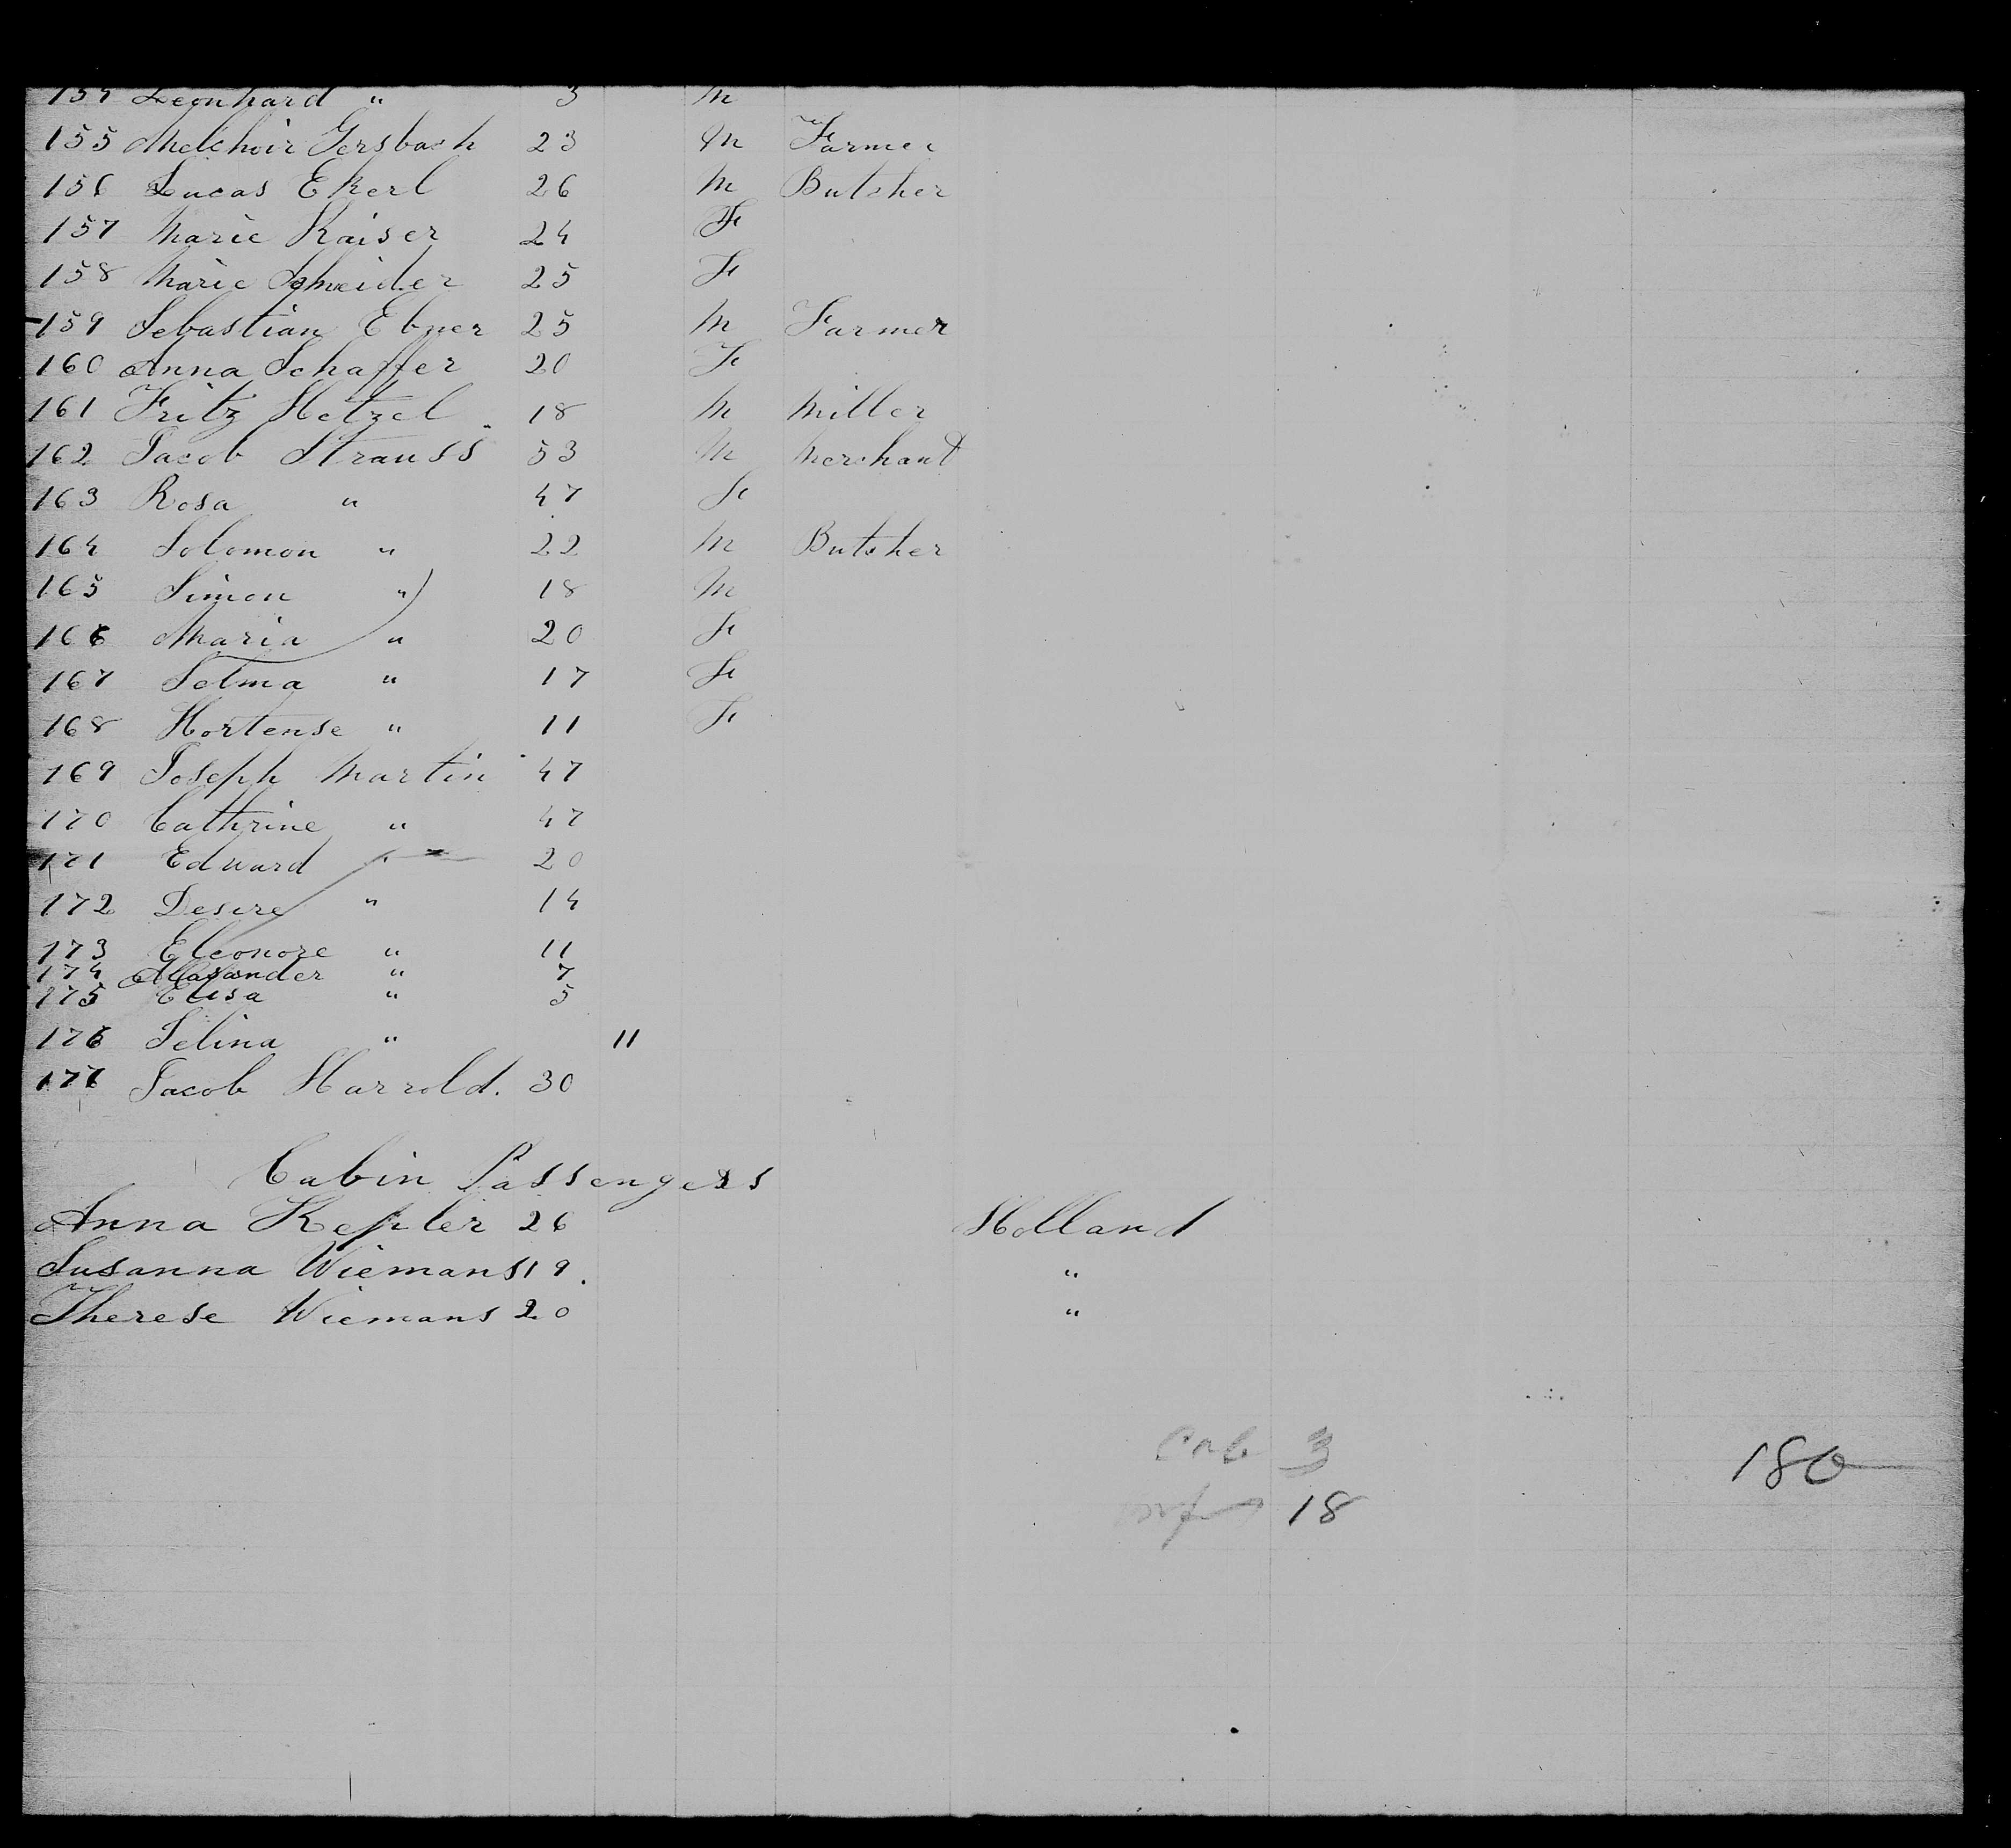 154 Leonhard " 3 M
155 Melchoir Gersbach 23 M Farmer
156 Lucas Ekerl 26 M Butcher
157 Marie Kaiser 24 F
158 Marie Schneider 25 F
159 Sebastian Ebner 25 M Farmer
160 Anna Schaffer 20 F
161 Fritz Hetzel 18 M Miller
162 Jacob Strauss 53 M Merchant
163 Rosa " 47 F
164 Solomon " 22 M Butcher
165 Simon " 18 M
166 Maria " 20 F
167 Selma " 17 F
168 Hortense " 11 F
169 Joseph Martin 47
170 Cathrine " 47
171 Edward " 20
172 Desire " 14
173 Eleonore " 11
174 Alexander " 7
175 Elisa " 5
176 Selina " 11
177 Jacob Harrold. 30
Cabin Passengers
Anna Kepler 26 Holland
Susanna Wiemans 19. "
Therese Wiemans 20 "
Cab 3
180
18